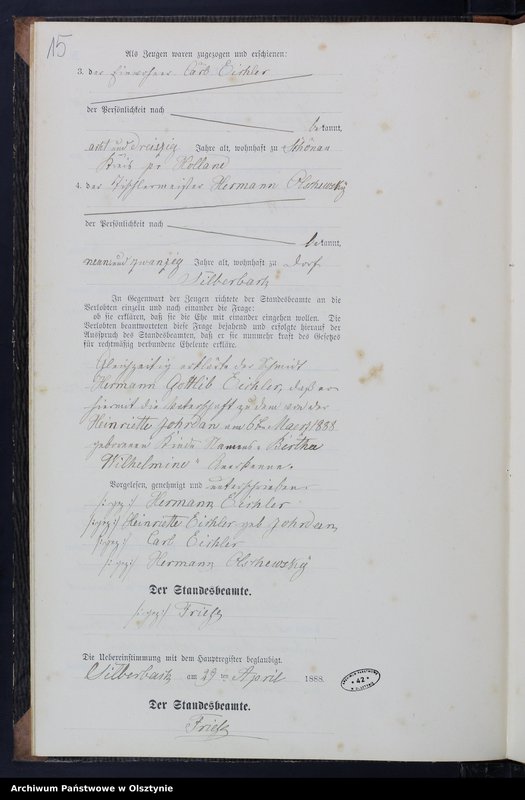 15
Als Zeugen waren zugezogen und erschienen:
3. der Einwohner Carl Eichler
der Persönlichkeit nach
bekannt,
acht und dreißig Jahre alt, wohnhaft zu Schönau
Kreis pr Holland
4. der Tischlermeister Hermann Olschewsky
der Persönlichkeit nach
bekannt,
neun und zwanzig Jahre alt, wohnhaft zu Dorf
Silberbach
In Gegenwart der Zeugen richtete der Standesbeamte an die
Verlobten einzeln und nach einander die Frage:
ob sie erklären, daß sie die Ehe mit einander eingehen wollen. Die
Verlobten beantworteten diese Frage bejahend und erfolgte hierauf der
Ausspruch des Standesbeamten, daß er sie nunmehr kraft des Gesetzes
für rechtmäßig verbundene Eheleute erkläre.
Gleichzeitig erklärte der Schmidt
Hermann Gottlieb Eichler, daß er
hiermit die Vaterschaft zu dem von der
Heinriette Johrdan am März 1888
geborenen Kinde Namens „Bertha
Wilhelmine“ Anerkenne.
Vorgelesen, genehmigt und unterschrieben
/:gez:/ Hermann Eichler
/:gez:/ Heinriette Eichler geb Johrdan
/:gez:/ Carl Eichler
/:gez:/ Hermann Olschewsky
Der Standesbeamte.
/:gez:/ Friesz
Die Uebereinstimmung mit dem Hauptregister beglaubigt.
Silberbach am 29 ten April 1888.
Der Standesbeamte.
Friesz
42
Archiwum Państwowe w Olsztynie